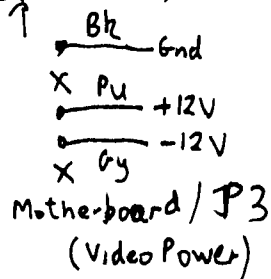 Bk Gnd
X Pu +12V
-12V
X Gy
Motherboard / P3
(Video Power)